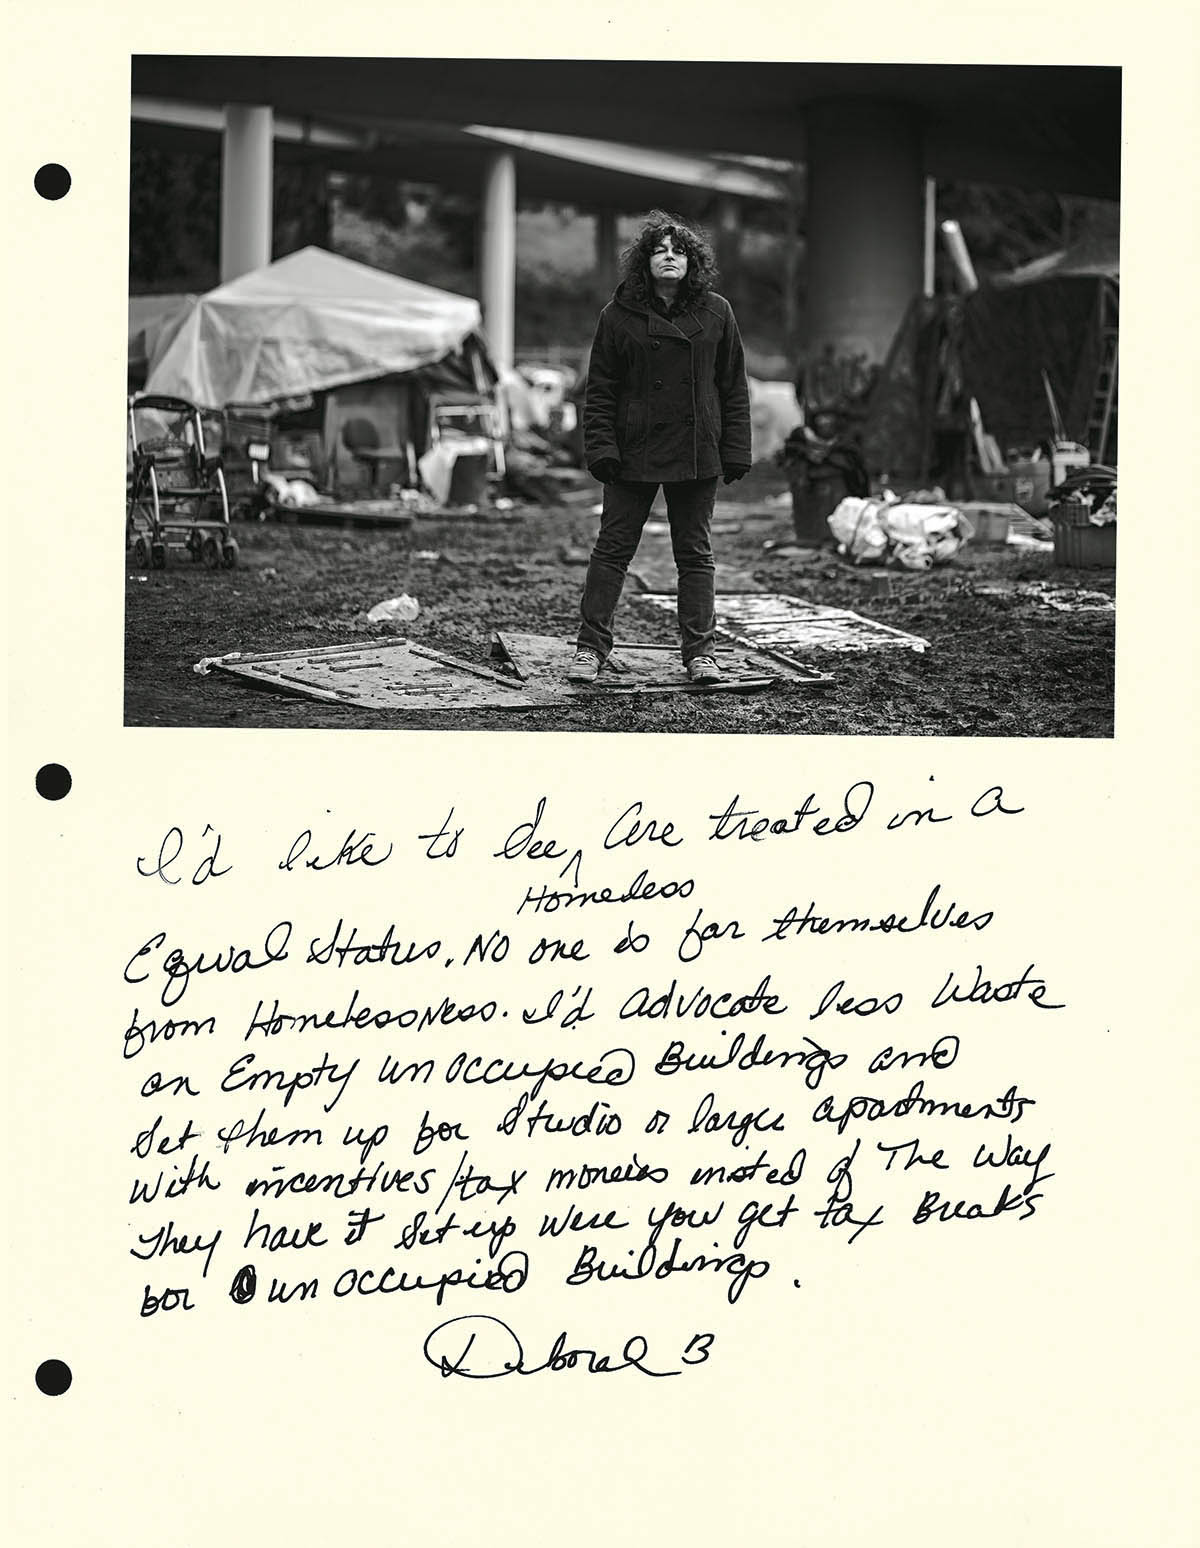 I'd like to See, Are treated in a
Homeless
Equal Status. No one is far themselves
from Homelessness. I'd advocate less Waste
on Empty unoccupied Buildings and
Set them up for Studio or larger apartments
With incentives/tax moneies insted of The Way
They have it Set up Were you get tax Breaks
for unoccupied Buildings.
Deborah B